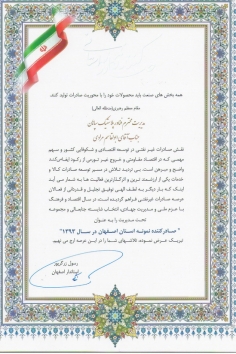 همه بخش های صنعت باید محصولات خود را با محوریت صادرات تولید کنند.
مقام معظم رهبری(مدظله العالی)
مدیریت محترم
جناب آقای
نقش صادرات غیر نفتی در توسعه اقتصادی و شکوفایی کشور و سهم
مهمی که در اقتصاد مقاومتی و خروج غیر تورمی از رکود ایفا می‌کند
واضح و مبرهن است. بی تردید تلاش در مسیر توسعه صادرات کالا و
خدمات یکی از ارزشمند ترین و اثرگذارترین فعالیت ها به شمار می آید
اینک که بار دیگر به لطف الهی توفیق تجلیل و قدردانی از فعالان
عرصه صادرات غیرنفتی فراهم گردیده است، در سال اقتصاد و فرهنگ
با عزم ملی و مدیریت جهادی، انتخاب شایسته جنابعالی و مجموعه
تحت مدیریت را به عنوان
" صادرکننده نمونه استان اصفهان در سال ۱۳۹۲"
تبریک عرض نموده، تلاشهای شما را در این عرصه ارج می نهیم
رسول زرگرپور
استاندار اصفهان